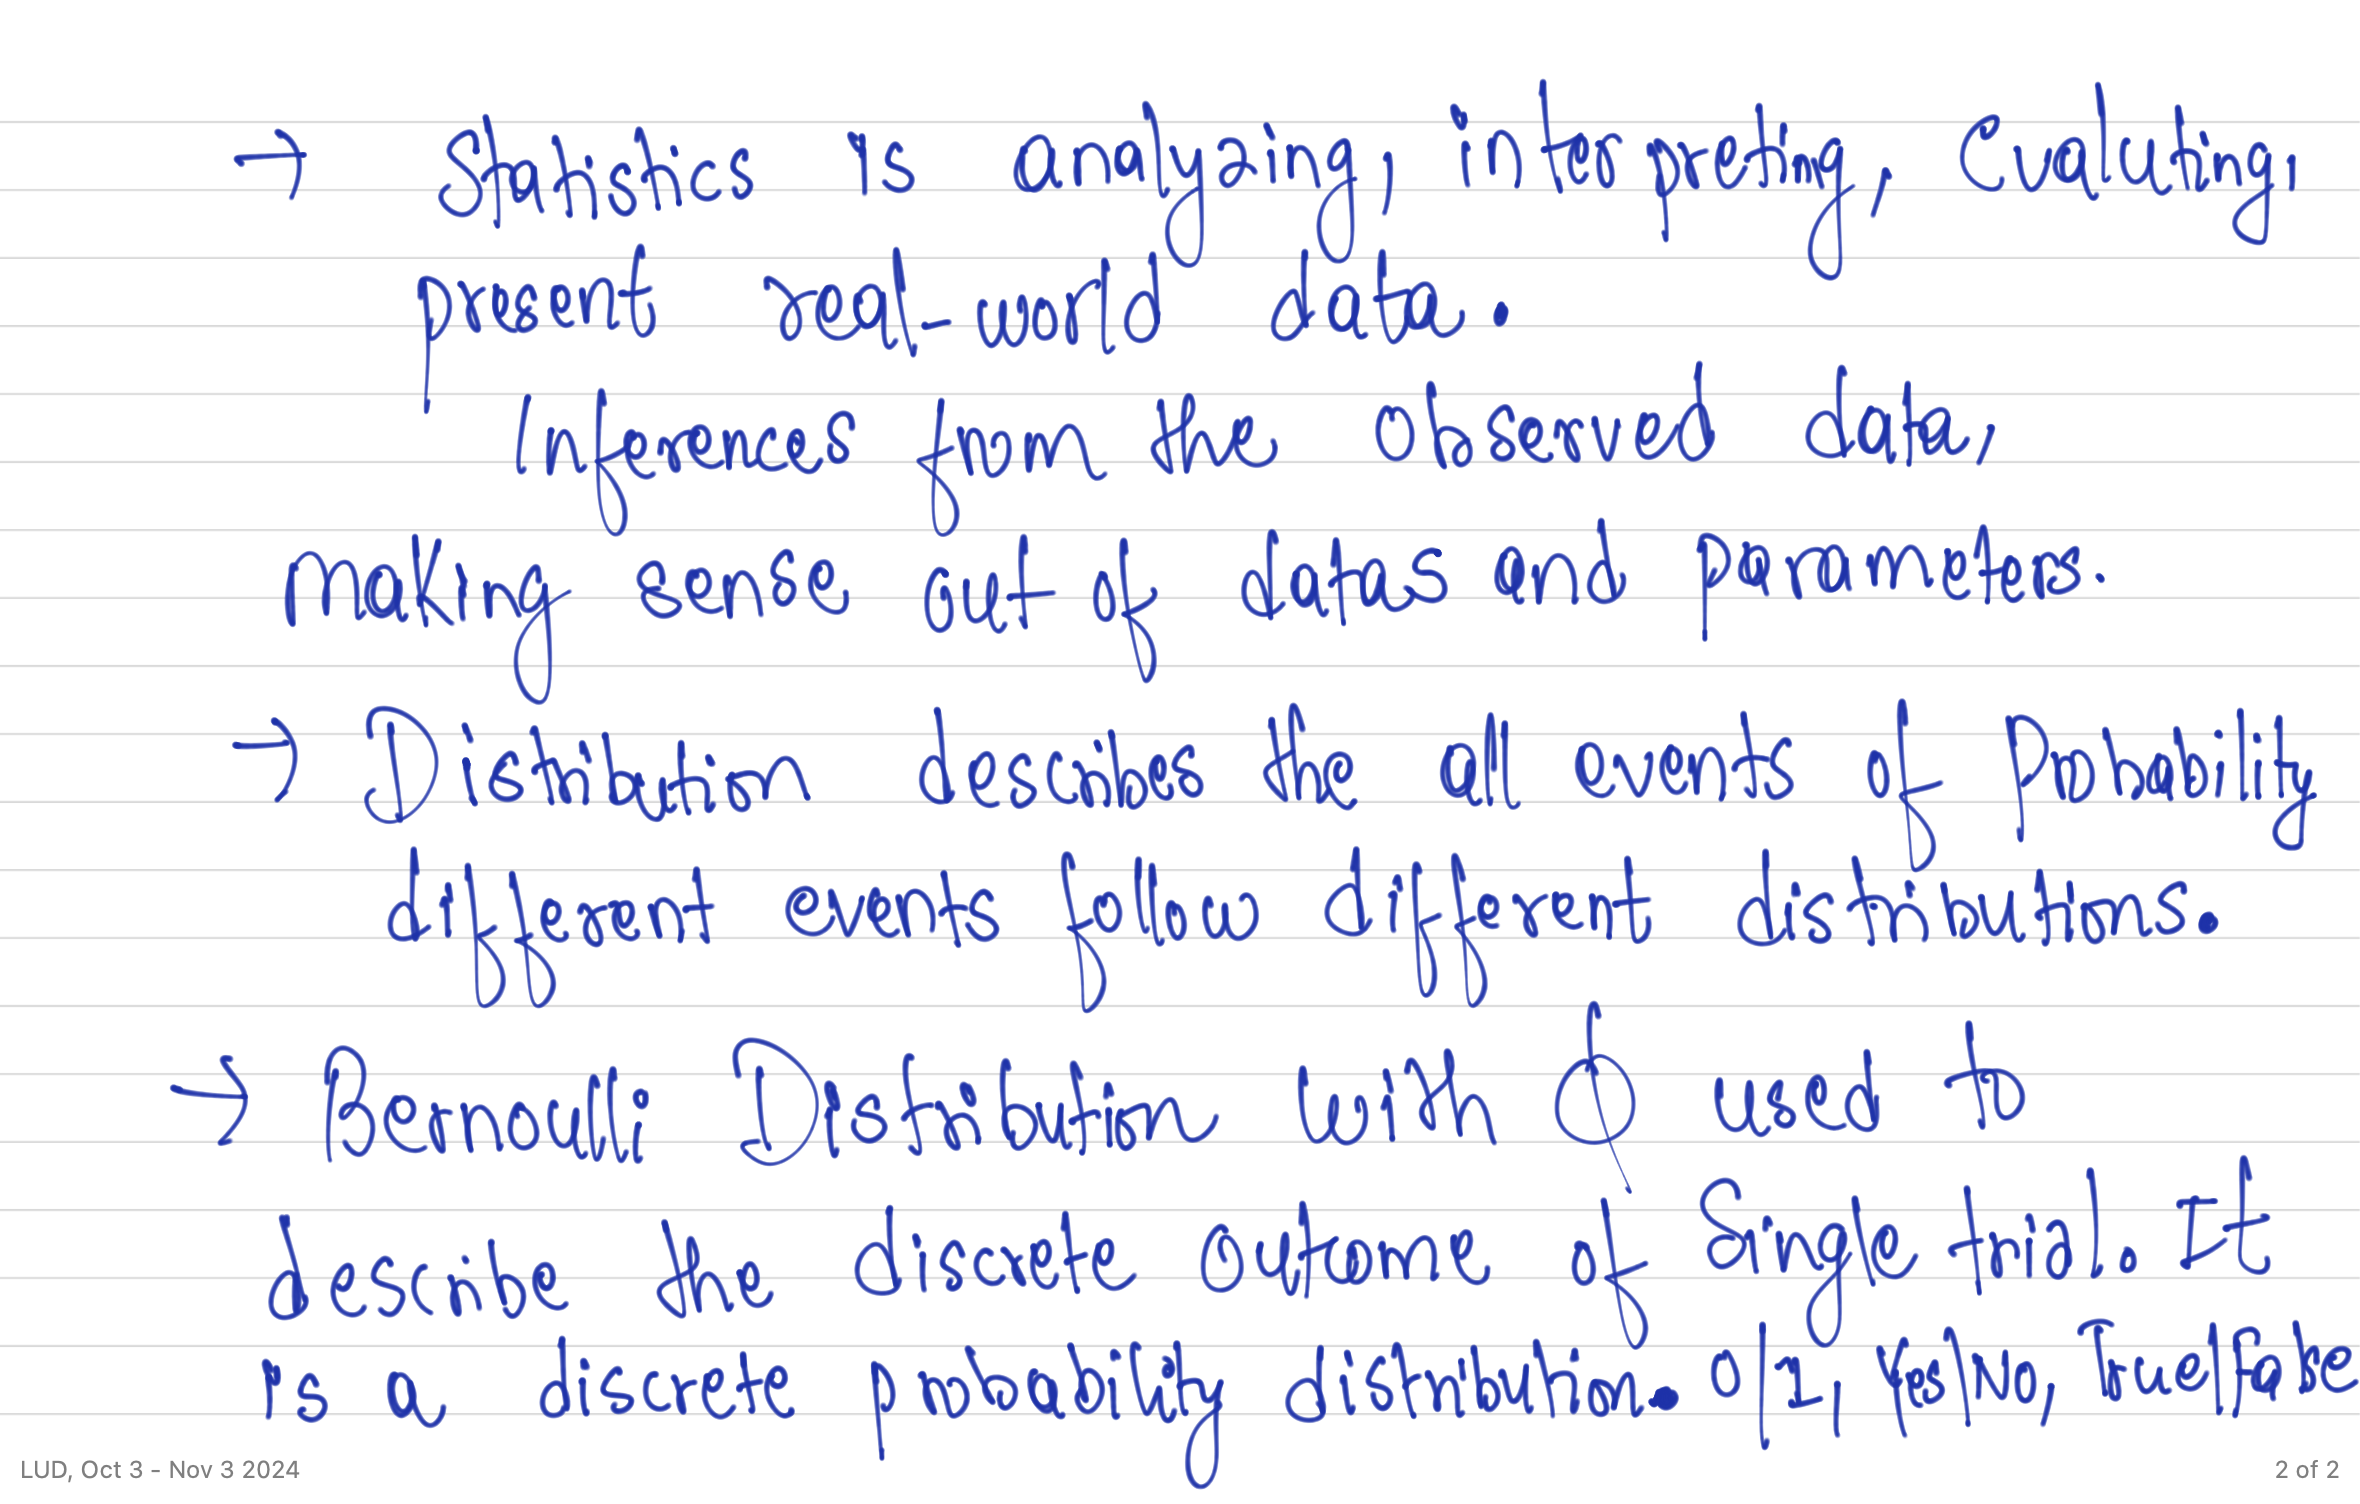 → Statistics is analyzing, interpreting, Evaluting,
present real-world data.
Inferences from the observed data,
Making sense out of datas and parameters.
→ Distribution describes the all events of Probability
different events follow different distributions.
→ Bernoulli Distribution with ϕ used to
describe the discrete outcome of Single trial. It
is a discrete probability distribution. 0/1, Yes/No, True/False
LUD, Oct 3 - Nov 3 2024
2 of 2